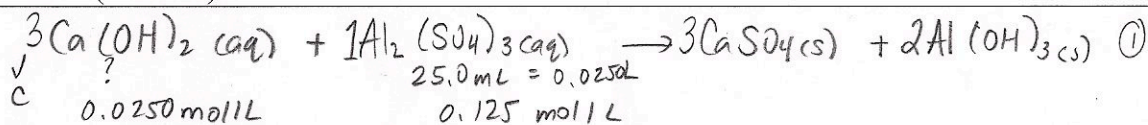 3Ca(OH)₂ (aq) + 1Al₂(SO₄)₃(aq) → 3CaSO₄(s) + 2Al(OH)₃(s) ①
? 25.0mL = 0.0250L
C 0.0250mol/L 0.125 mol/L